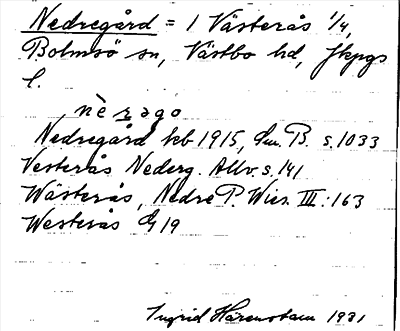 Nedregård = 1 Västerås 1/4,
Bolmsö sn, Västbo hd, Jkpgs
l.
, nèrago
Nedregård kb 1915, Sm. B. s. 1033
Vesterås Nederg. Allv. s. 141
Wästerås, Nedre P. Wies. III: 163
Westerås G 19
Ingrid Härenstam 1931